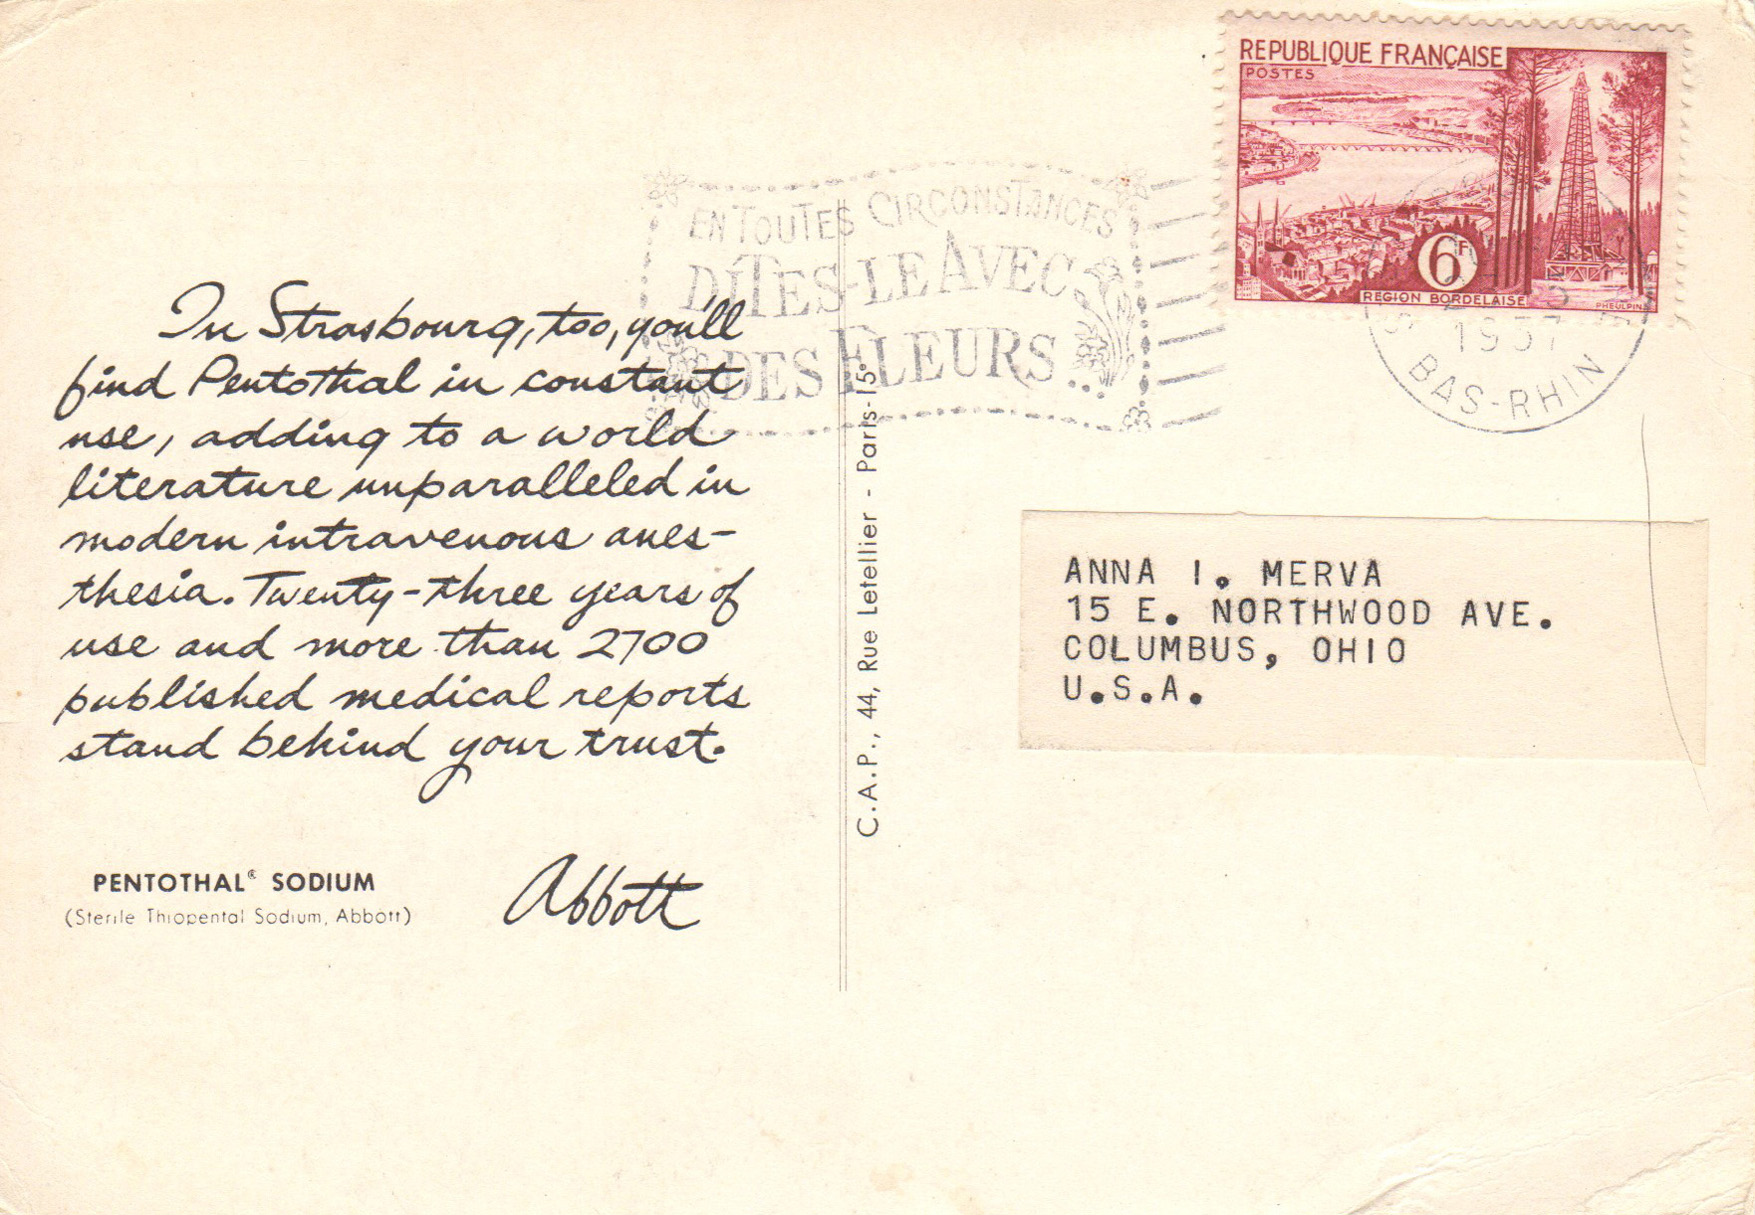 In Strasbourg, too, you'll
find Pentothal in constant
use, adding to a world
literature unparalleled in
modern intravenous anes-
thesia. Twenty-three years of
use and more than 2700
published medical reports
stand behind your trust.
PENTOTHAL® SODIUM
(Sterile Thiopental Sodium, Abbott)
Abbott
C.A.P., 44, Rue Letellier - Paris-15e
EN TOUTES CIRCONSTANCES
DITES-LE AVEC
DES FLEURS..
REPUBLIQUE FRANÇAISE
POSTES
6F
REGION BORDELAISE
PHEULPIN
1957
BAS-RHIN
ANNA I. MERVA
15 E. NORTHWOOD AVE.
COLUMBUS, OHIO
U.S.A.